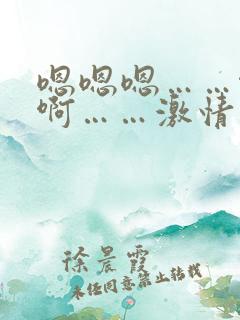 嗯嗯嗯……
啊……激情
徐晨霞
未经同意禁止转载